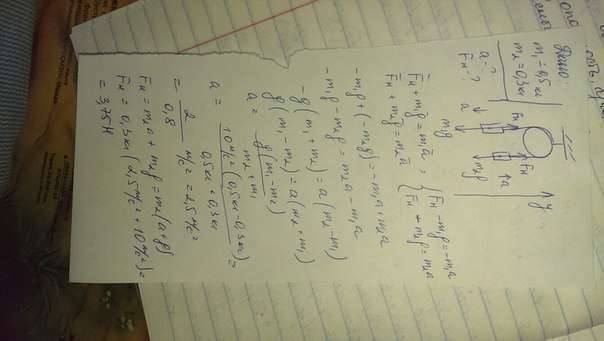 Дано:
m₁ = 0,5 кг
m₂ = 0,3 кг
a - ?
Fн - ?
y
Fн
Fн
a
a
m₁g
m₂g
Fн + m₁g = m₁a
Fн + m₂g = m₂a
Fн - m₁g = -m₁a
Fн - m₂g = m₂a
-m₁g + (-m₂g) = -m₁a + m₂a
-m₁g - m₂g = m₂a - m₁a
-g(m₁ + m₂) = a(m₂ - m₁)
g(m₁ - m₂) = a(m₂ + m₁)
a = g(m₁ - m₂) / m₂ + m₁
a = 10 м/с² (0,5 кг - 0,3 кг) / 0,5 кг + 0,3 кг =
= 2 / 0,8 м/с² = 2,5 м/с²
Fн = m₂a + m₂g = m₂(a + g)
Fн = 0,3 кг (2,5 м/с² + 10 м/с²) =
= 3,75 Н